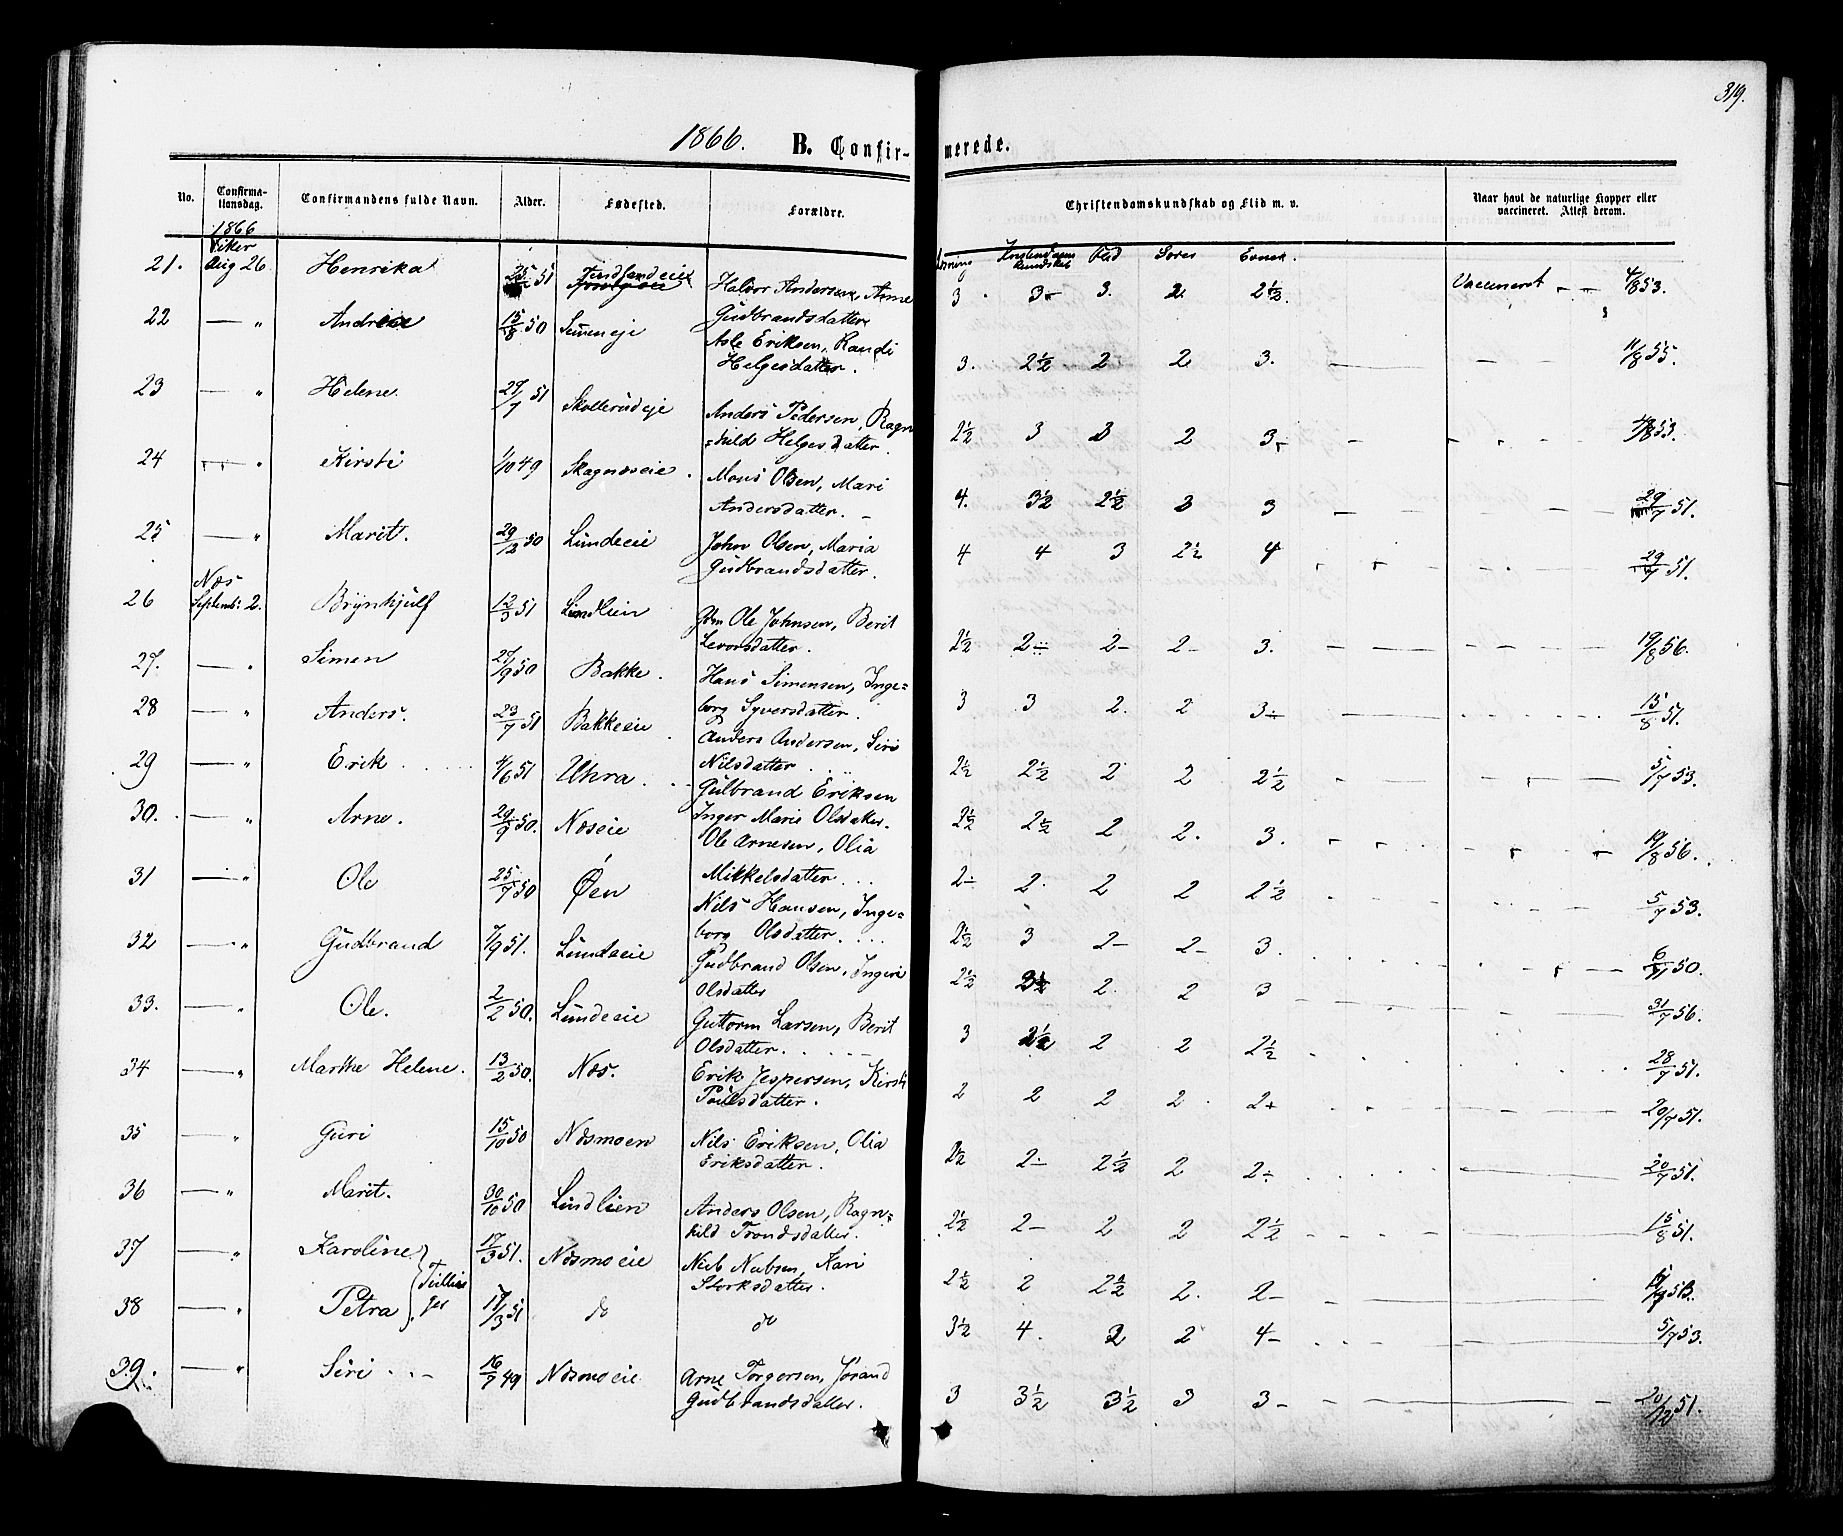 319.
1866. B. Confirmerede.
No. Confirmationsdag. Confirmandens fulde Navn. Alder. Fødested. Forældre. Christendomskundskab og Flid m. v. Naar havt de naturlige Kopper eller vaccineret. Attest derom.
1866
Viker Kundskab Flid Evner
21. Aug 26 Henrika 25 51 Halvor Andersen, Anne Gudbrandsdatter 3 3 3. 2 2½. Vaccineret 4/8 53.
22 — " Andrine 15/8 50 Simeneje Asle Eriksen, Randi Helgesdatter. 3. 2½ 2 2 3. 11/8 55.
23 — " Helene 27/7 51 Skollerudeje Anders Pedersen, Ragnhild Helgesdatter. 2½ 3 3 2 3 /8 53.
24 — " Kirsti 1/10 49 Skagnæseie. Mons Olsen, Mari Andersdatter. 4. 3½ 2½ 3 3 29/7 51.
25 — " Marit. 29/12 50 Lundeeie John Olsen, Maria Gudbrandsdatter. 4 4 3 2½ 4 29/7 51.
Næs
26 Septemb: 2. Brynhjulf 12/3 51 Lindlien Gbm Ole Johnsen, Berit Levorsdatter. 2½ 2÷ 2- 2- 3. 19/8 56.
27. — " Simen 27/9 50 Bakke. Hans Simensen, Ingeborg Syversdatter. 3 3 2. 2 3÷ 15/8 51.
28 — " Anders. 23/7 51 Bakkeeie Anders Andersen, Siri Nilsdatter. 2½ 2½ 2 2 2½ 5/7 53.
29 — " Erik 4/6 51 Uhra. Gulbrand Eriksen Inger Marie Olsdatter. 2½ 2½ 2 2. 3. 19/8 56.
30. — " Arne. 29/9 50. Næseie Ole Arnesen, Olia Mikkelsdatter 2÷ 2. 2 2 2½ 5/7 53.
31 — " Ole 25/7 50 Øen Nils Hansen, Ingeborg Olsdatter 2½ 3 2- 2- 3. 6/11 50.
32 — " Gudbrand 7/9 51. Lundeeie Gudbrand Olsen, Ingeri Olsdatter 2½ 3½ 2. 2 3 31/7 56.
33. — " Ole. 2/2 50. Lundeeie Guttorm Larsen, Berit Olsdatter. 3 2½ 2 2 2½ 28/7 51.
34 — " Marthe Helene. 13/2 50. Næs. Erik Jespersen, Kirsti Poulsdatter. 2 2 2 2. 2+ 20/7 51.
35 — " Guri 15/10 50 Næsmoen Nils Eriksen, Olia Eriksdatter. 2½ 2÷ 2½ 2 2÷ 20/7 51.
36 — " Marit. 30/10 50 Lindlien Anders Olsen, Ragnhild Trondsdatter. 2½ 2- 2 2 2½ 15/8 51.
37 — " Karoline } Tvillinger 17/3 51. Næsmoeie Niels Nielsen, Kari Storksdatter. 2½ 2 2½ 2. 2-
38 — " Petra } 17/3 51 do do 3½ 4. 2 2 4- 5/7 53.
39. — " Siri 16/7 49 Næsmoeie Arne Torgersen, Jørand Gudbrandsdatter. 3 3½ 3½ 3 3- 20/12 51.